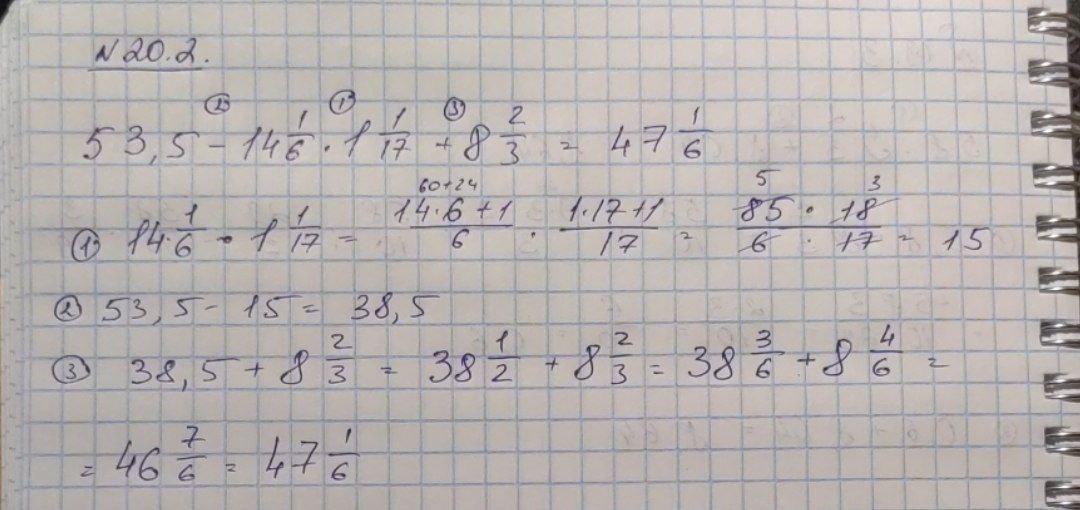 N 20.2.
② ① ③
53,5 - 14 1/6 · 1 1/17 + 8 2/3 = 47 1/6
60+24 5 3
① 14 · 1/6 · 1 1/17 = (14·6+1)/6 · (1·17+1)/17 = (85 · 18)/(6 · 17) = 15
② 53,5 - 15 = 38,5
③ 38,5 + 8 2/3 = 38 1/2 + 8 2/3 = 38 3/6 + 8 4/6 =
= 46 7/6 = 47 1/6